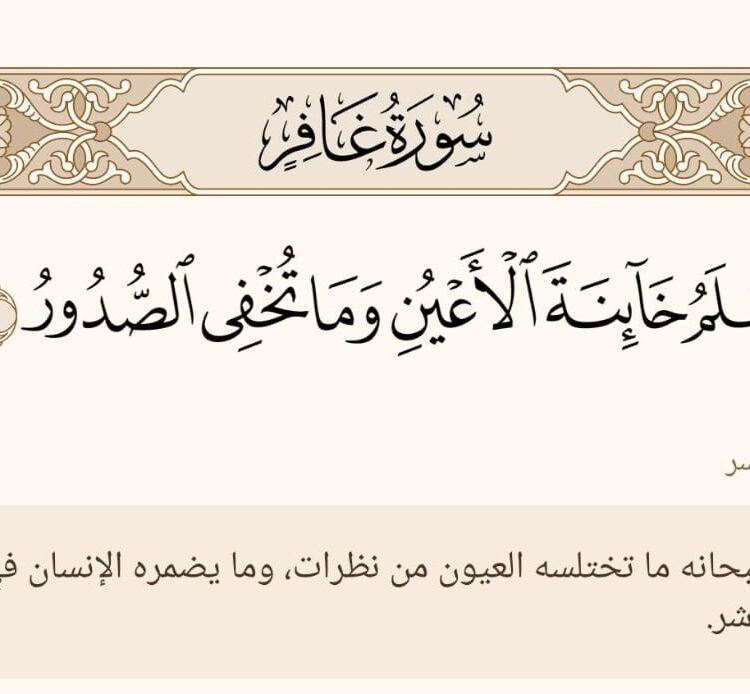 سُورَةُ غَافِرٍ
خَآئِنَةَ ٱلْأَعْيُنِ وَمَا تُخْفِى ٱلصُّدُورُ
ما تختلسه العيون من نظرات، وما يضمره الإنسان